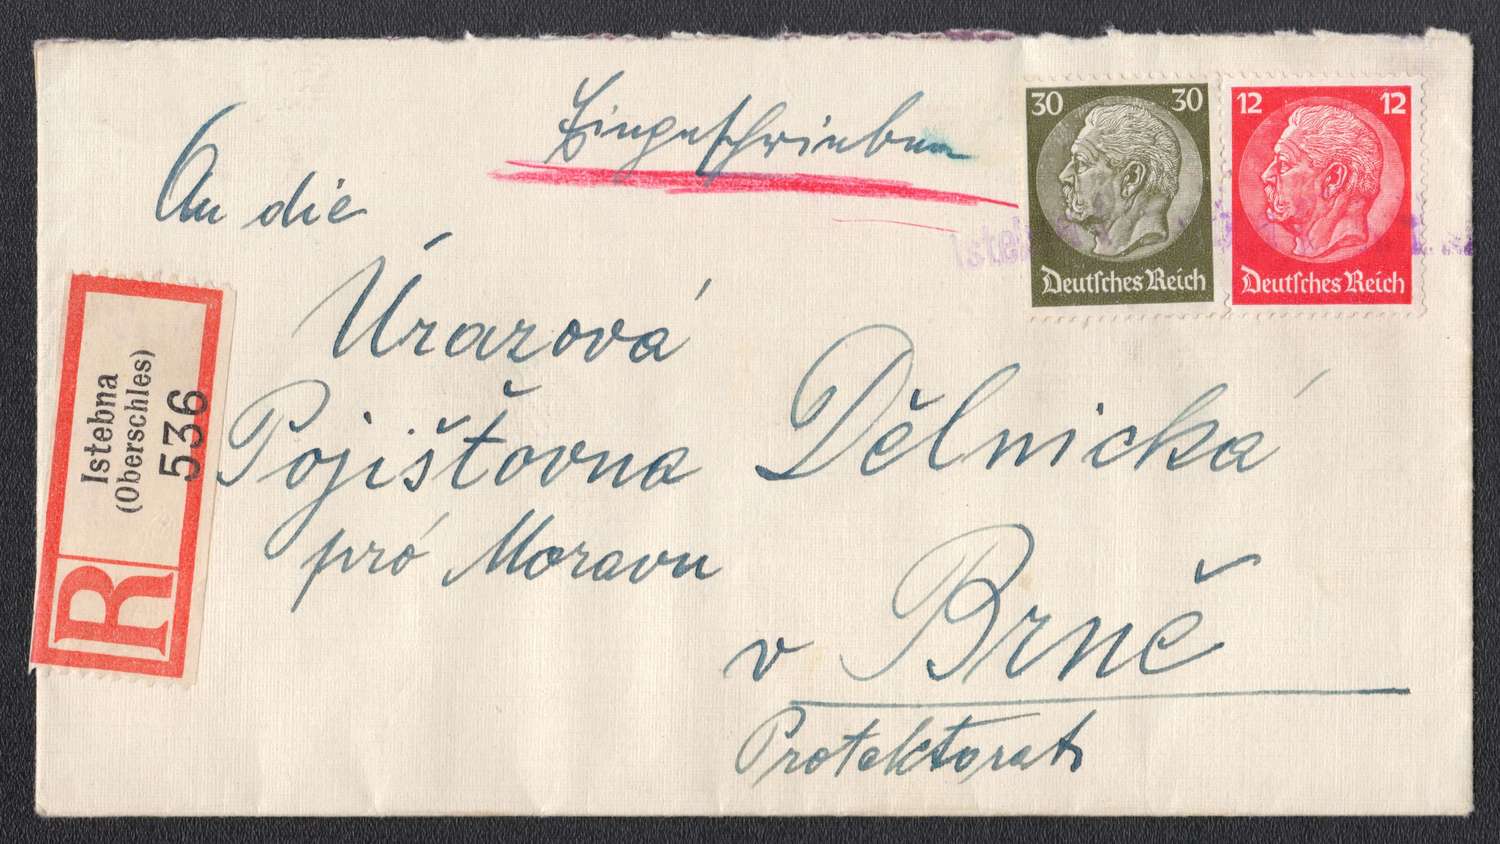 Eingeschrieben
30 30
Deutsches Reich
12 12
Deutsches Reich
An die
Úrazová
Pojišťovna Dělnická
pró Moravu
v Brně
Protektorat
Istebna
(Oberschles)
536
R